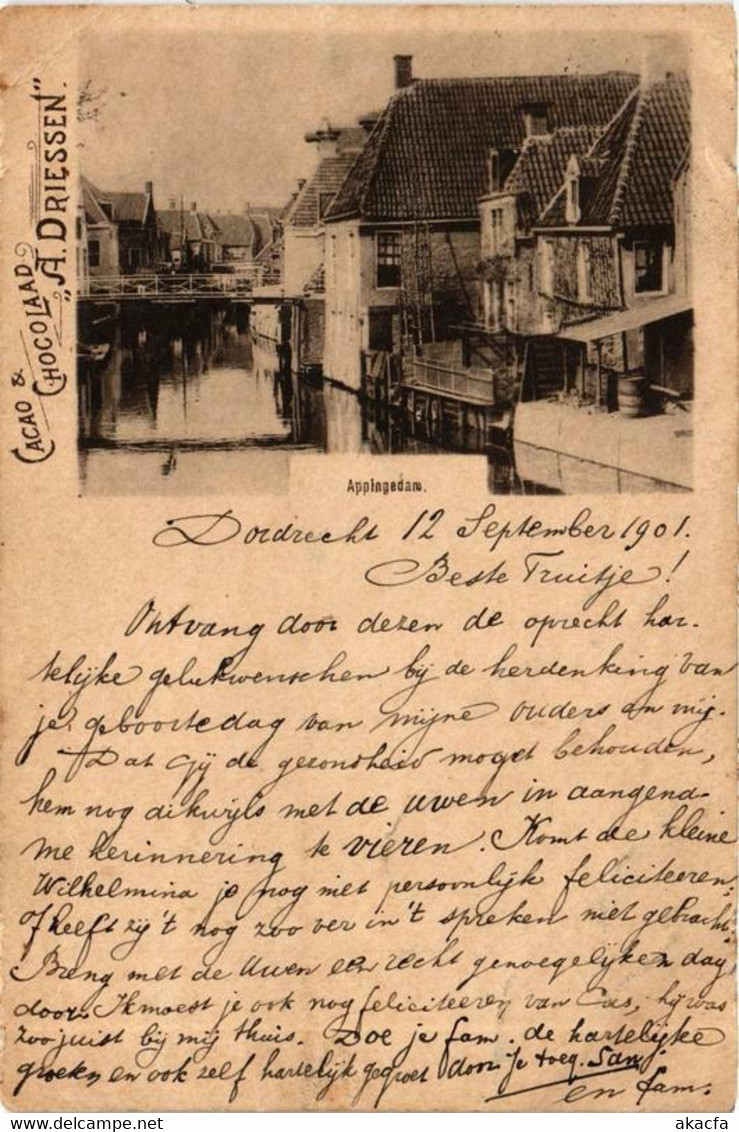 CACAO &
CHOCOLAAD
"A. DRIESSEN".
Appingedam.
Dordrecht 12 September 1901.
Beste Truitje!
Ontvang door dezen de oprecht har-
telijke gelukwenschen bij de herdenking van
je geboortedag van mijne ouders en mij.
Dat Gij de gezondheid moget behouden,
hem nog dikwijls met de uwen in aangena-
me herinnering te vieren. Komt de kleine
Wilhelmina je nog niet persoonlijk feliciteeren;
of heeft zij 't nog zoo ver in 't spreken niet gebracht.
Breng met de Uwen een recht genoegelijken dag
door. Ik moest je ook nog feliciteeren van Cas, hij was
zoo juist bij mij thuis. Doe je fam. de hartelijke
groeten en ook zelf hartelijk gegroet door Je toeg.
en fam.
akacfa
www.delcampe.net
akacfa